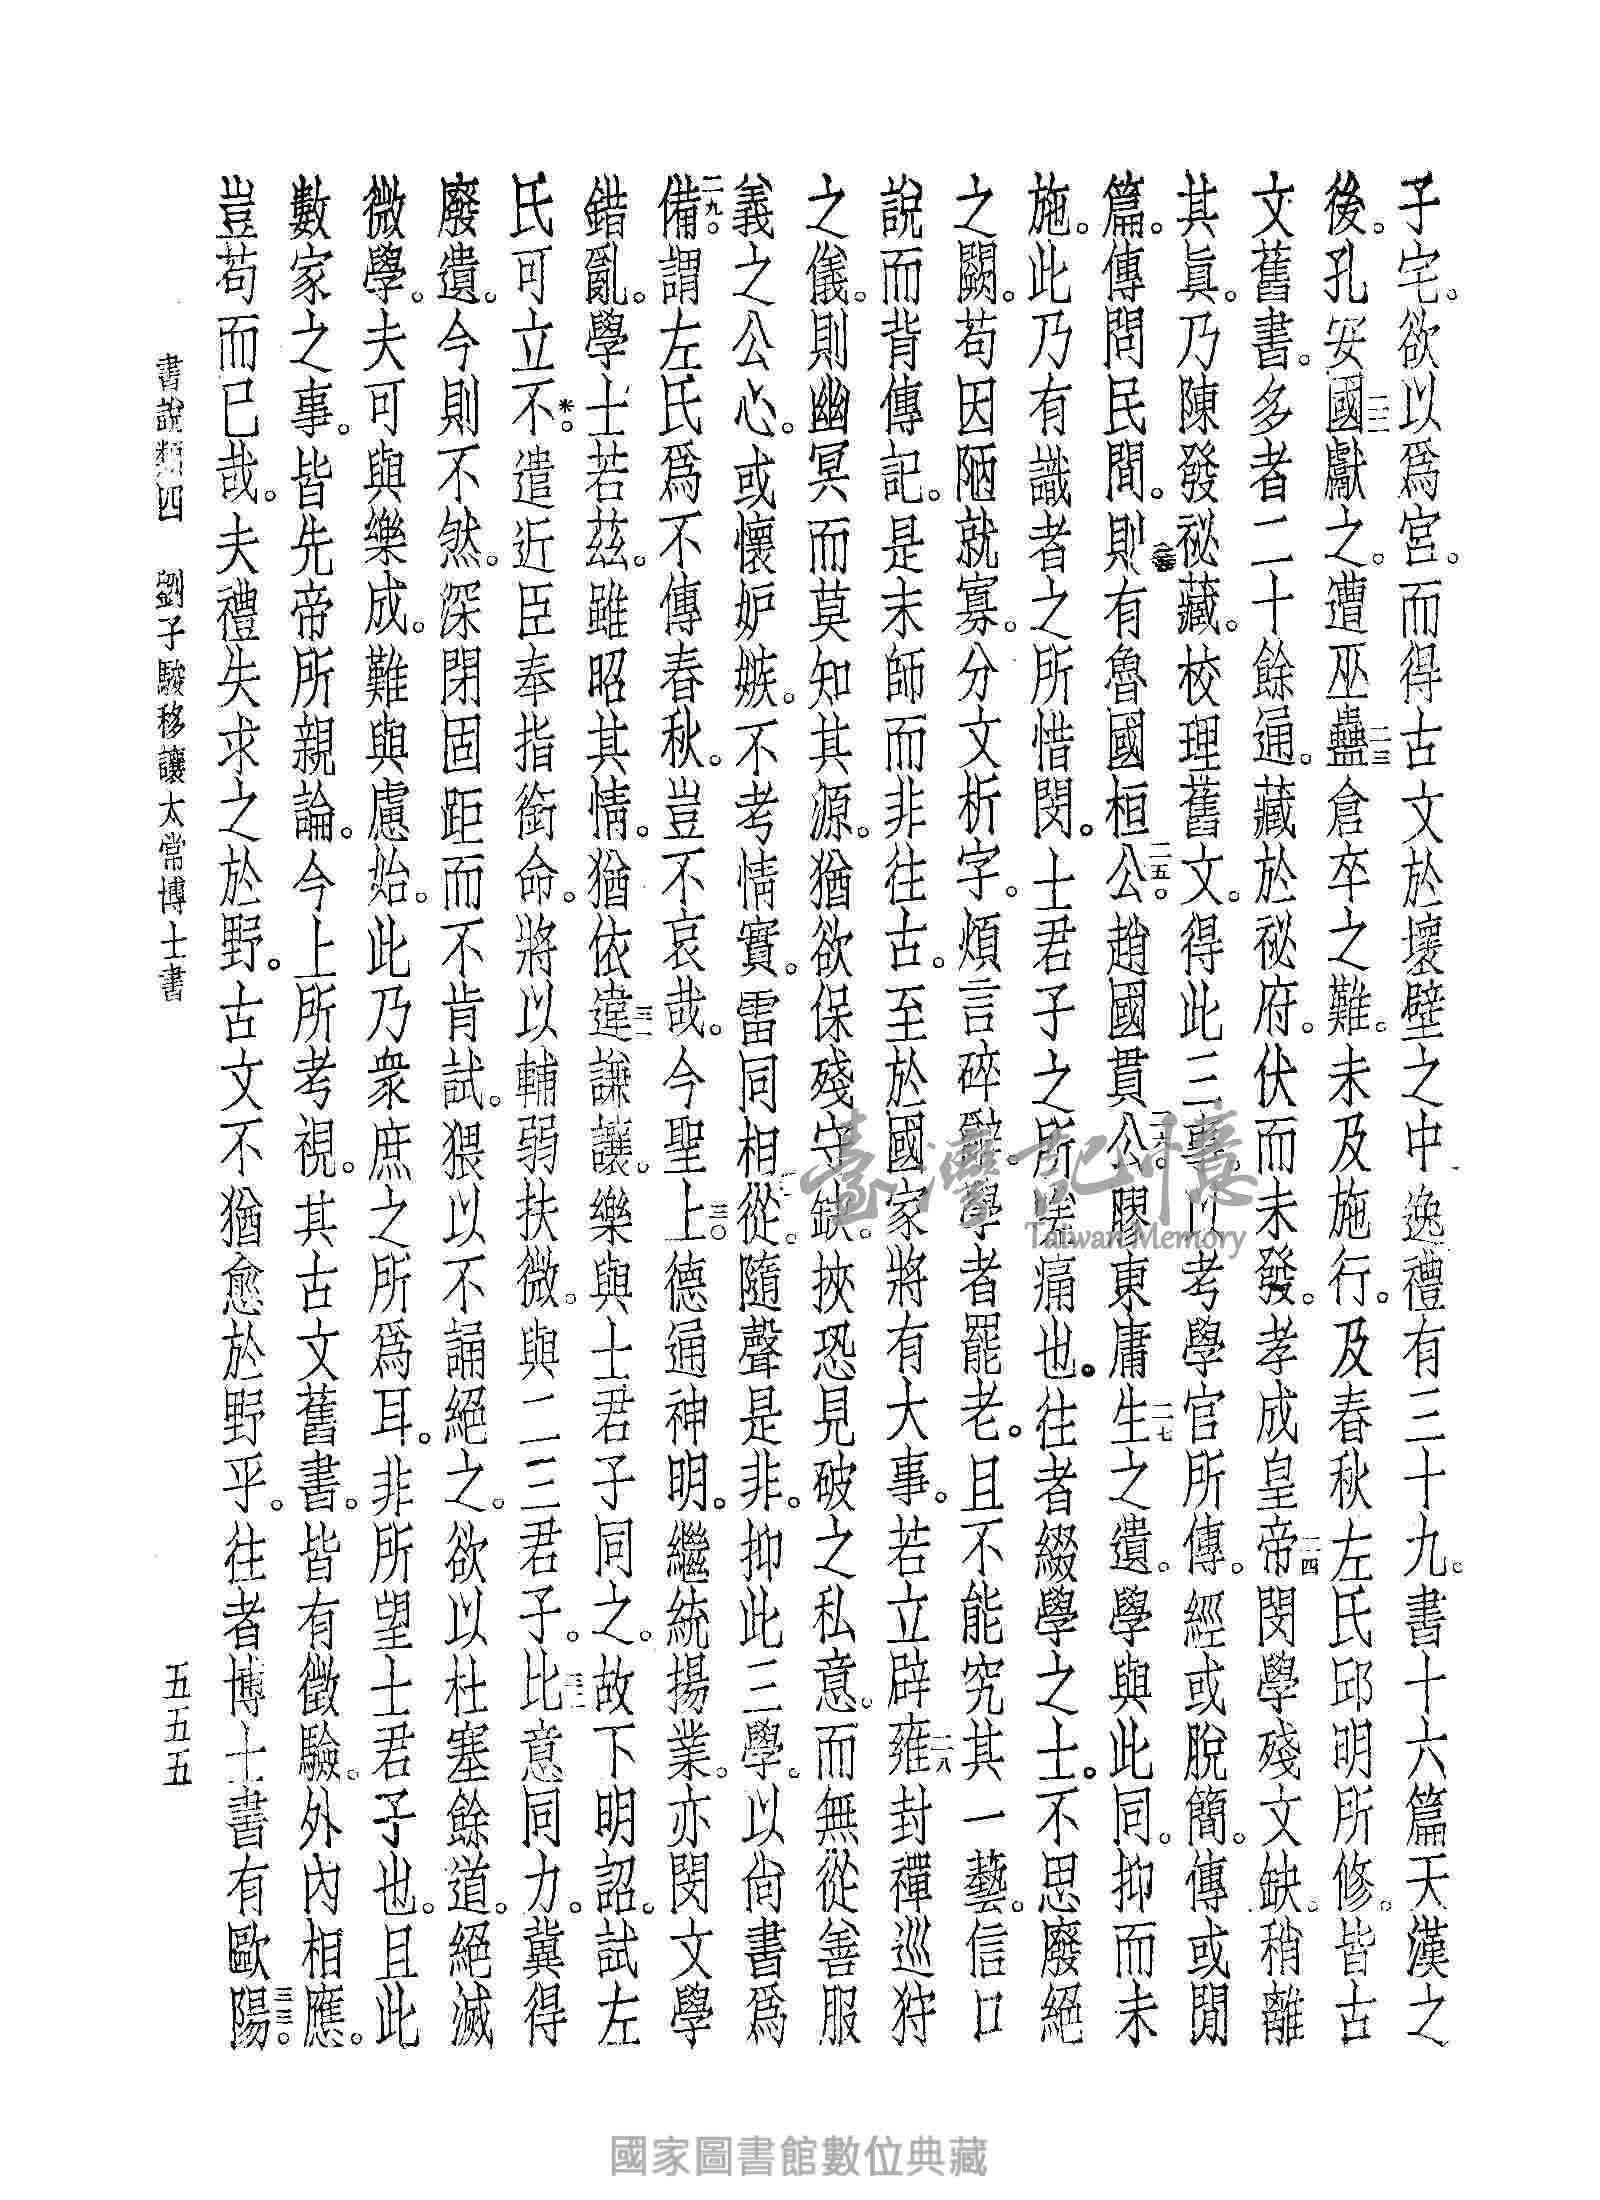 子宅。欲以爲宮。而得古文於壞壁之中逸禮有三十九。書十六篇天漢之
後。孔安國二二獻之。遭巫蠱二三倉卒之難。未及施行。及春秋左氏邱明所修。皆古
文舊書。多者二十餘通。藏於祕府。伏而未發。孝成皇帝二四閔學殘文缺。稍離
其眞。乃陳發祕藏。校理舊文。得此三事。以考學官所傳。經或脫簡。傳或閒
篇。傳問民間。則有魯國桓公二五。趙國貫公二六。膠東庸生二七之遺。學與此同。抑而未
施。此乃有識者之所惜閔。士君子之所嗟痛也。往者綴學之士。不思廢絕
之闕。苟因陋就寡。分文析字。煩言碎辭。學者罷老。且不能究其一藝。信口
說而背傳記。是末師而非往古。至於國家將有大事。若立辟雍二八封禪巡狩
之儀。則幽冥而莫知其源。猶欲保殘守缺。挾恐見破之私意。而無從善服
義之公心。或懷妒嫉。不考情實。雷同相從。隨聲是非。抑此三學。以尙書爲
備二九。謂左氏爲不傳春秋。豈不哀哉。今聖上三〇。德通神明。繼統揚業。亦閔文學
錯亂。學士若茲。雖昭其情。猶依違三一謙讓。樂與士君子同之。故下明詔。試左
氏可立不*。遣近臣奉指銜命。將以輔弱扶微。與二三君子。比三二意同力。冀得
廢遺。今則不然。深閉固距而不肯試。猥以不誦絕之。欲以杜塞餘道。絕滅
微學。夫可與樂成。難與慮始。此乃衆庶之所爲耳。非所望士君子也。且此
數家之事。皆先帝所親論。今上所考視。其古文舊書。皆有徵驗。外內相應。
豈苟而已哉。夫禮失求之於野。古文不猶愈於野乎。往者博士書有歐陽三三。
書說類四　劉子駿移讓太常博士書　五五五
臺灣記憶
Taiwan Memory
國家圖書館數位典藏